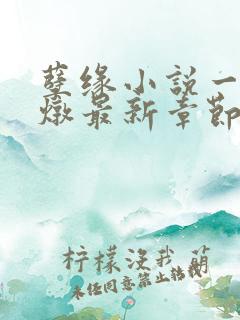 孽缘小说一
燉最新章節
柠檬没我萌
未经同意禁止转载